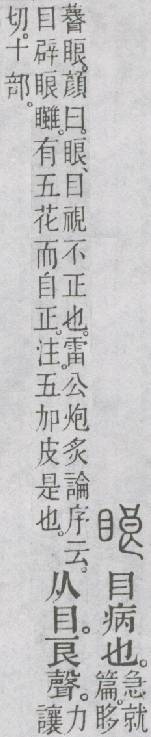 目病也。急就
篇。眵
䁾䀶。顏曰。䀶、目視不正也。雷公炮炙論序云。
目辟眼有五花而自正。注。五加皮是也。
从目。良聲。力
讓
切。十部。